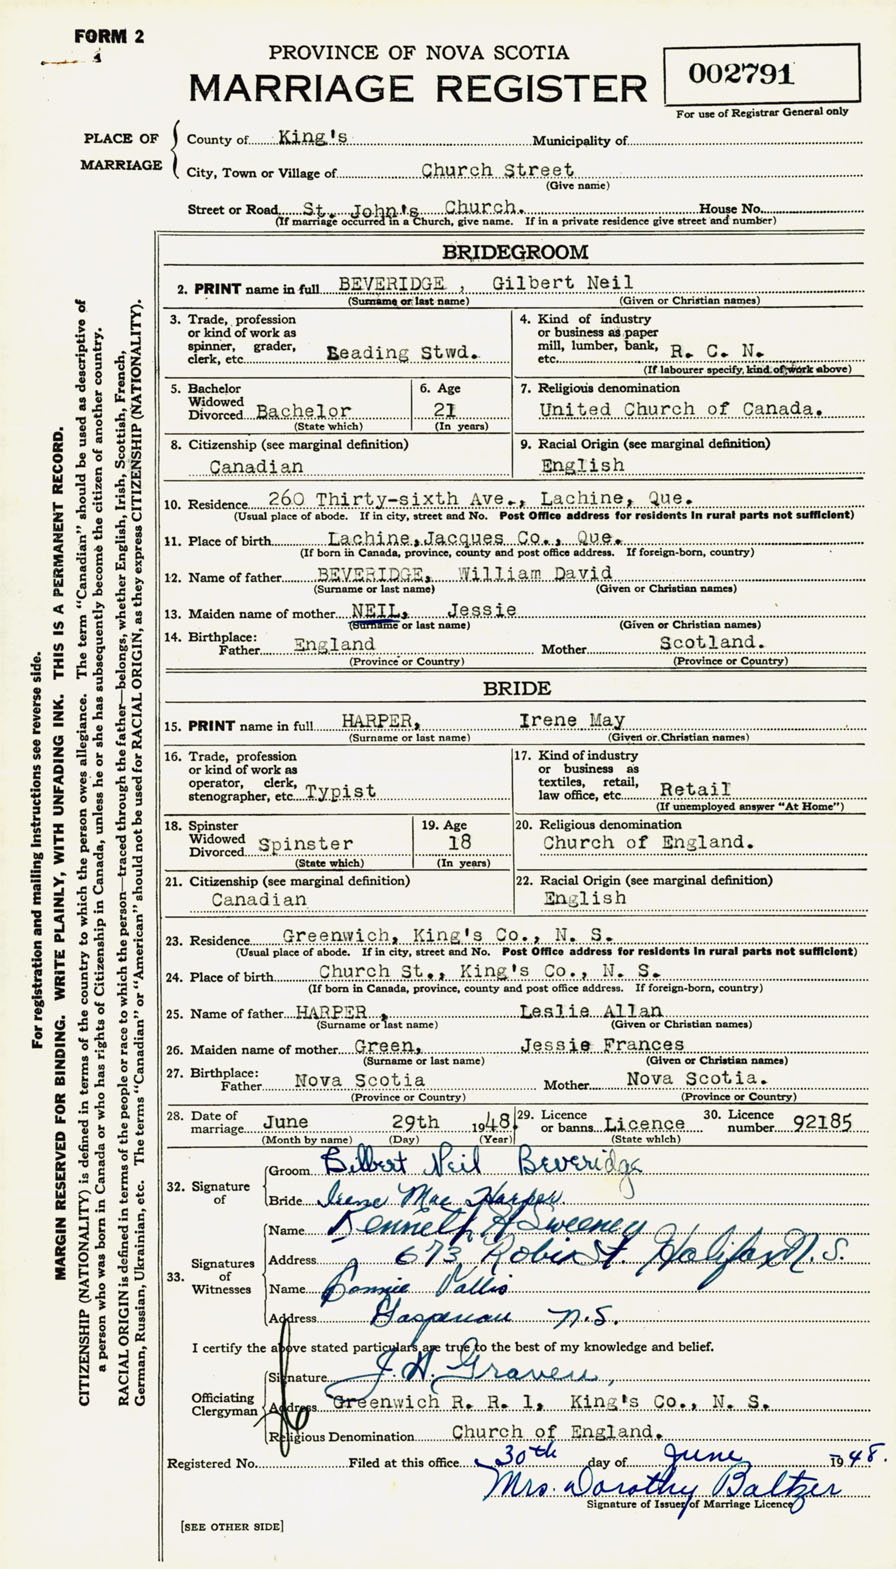 FORM 2
PROVINCE OF NOVA SCOTIA
MARRIAGE REGISTER
002791
For use of Registrar General only
PLACE OF MARRIAGE
County of King's Municipality of
City, Town or Village of Church Street
(Give name)
Street or Road St. John's Church. House No.
(If marriage occurred in a Church, give name. If in a private residence give street and number)
BRIDEGROOM
2. PRINT name in full BEVERIDGE, Gilbert Neil
(Surname or last name) (Given or Christian names)
3. Trade, profession or kind of work as spinner, grader, clerk, etc. Leading Stwd.
4. Kind of industry or business as paper mill, lumber, bank, etc. R. C. N.
(If labourer specify kind of work above)
5. Bachelor Widowed Divorced Bachelor
(State which)
6. Age 21
(In years)
7. Religious denomination
United Church of Canada.
8. Citizenship (see marginal definition)
Canadian
9. Racial Origin (see marginal definition)
English
10. Residence 260 Thirty-sixth Ave., Lachine, Que.
(Usual place of abode. If in city, street and No. Post Office address for residents in rural parts not sufficient)
11. Place of birth Lachine, Jacques Co., Que.
(If born in Canada, province, county and post office address. If foreign-born, country)
12. Name of father BEVERIDGE, William David
(Surname or last name) (Given or Christian names)
13. Maiden name of mother NEIL, Jessie
(Surname or last name) (Given or Christian names)
14. Birthplace: Father England Mother Scotland.
(Province or Country) (Province or Country)
BRIDE
15. PRINT name in full HARPER, Irene May
(Surname or last name) (Given or Christian names)
16. Trade, profession or kind of work as operator, clerk, stenographer, etc. Typist
17. Kind of industry or business as textiles, retail, law office, etc. Retail
(If unemployed answer "At Home")
18. Spinster Widowed Divorced Spinster
(State which)
19. Age 18
(In years)
20. Religious denomination
Church of England.
21. Citizenship (see marginal definition)
Canadian
22. Racial Origin (see marginal definition)
English
23. Residence Greenwich, King's Co., N. S.
(Usual place of abode. If in city, street and No. Post Office address for residents in rural parts not sufficient)
24. Place of birth Church St., King's Co., N. S.
(If born in Canada, province, county and post office address. If foreign-born, country)
25. Name of father HARPER, Leslie Allan
(Surname or last name) (Given or Christian names)
26. Maiden name of mother Green, Jessie Frances
(Surname or last name) (Given or Christian names)
27. Birthplace: Father Nova Scotia Mother Nova Scotia.
(Province or Country) (Province or Country)
28. Date of marriage June 29th 1948
(Month by name) (Day) (Year)
29. Licence or banns Licence
(State which)
30. Licence number 92185
32. Signature of
Groom Gilbert Neil Beveridge
Bride Irene Mae Harper.
33. Signatures of Witnesses
Name Kenneth A Sweeney
Address 673 Robie St. Halifax N.S.
Name Connie Vallis
Address Gaspereau N.S.
I certify the above stated particulars are true to the best of my knowledge and belief.
Officiating Clergyman
Signature J. H. Graven,
Address Greenwich R. R. 1, King's Co., N. S.
Religious Denomination Church of England.
Registered No. Filed at this office 30th day of June 1948.
Mrs. Dorothy Baltzer
Signature of Issuer of Marriage Licence
[SEE OTHER SIDE]
For registration and mailing instructions see reverse side.
MARGIN RESERVED FOR BINDING. WRITE PLAINLY, WITH UNFADING INK. THIS IS A PERMANENT RECORD.
CITIZENSHIP (NATIONALITY) is defined in terms of the country to which the person owes allegiance. The term "Canadian" should be used as descriptive of
a person who was born in Canada or who has rights of Citizenship in Canada, unless he or she has subsequently become the citizen of another country.
RACIAL ORIGIN is defined in terms of the people or race to which the person—traced through the father—belongs, whether English, Irish, Scottish, French,
German, Russian, Ukrainian, etc. The terms "Canadian" or "American" should not be used for RACIAL ORIGIN, as they express CITIZENSHIP (NATIONALITY).